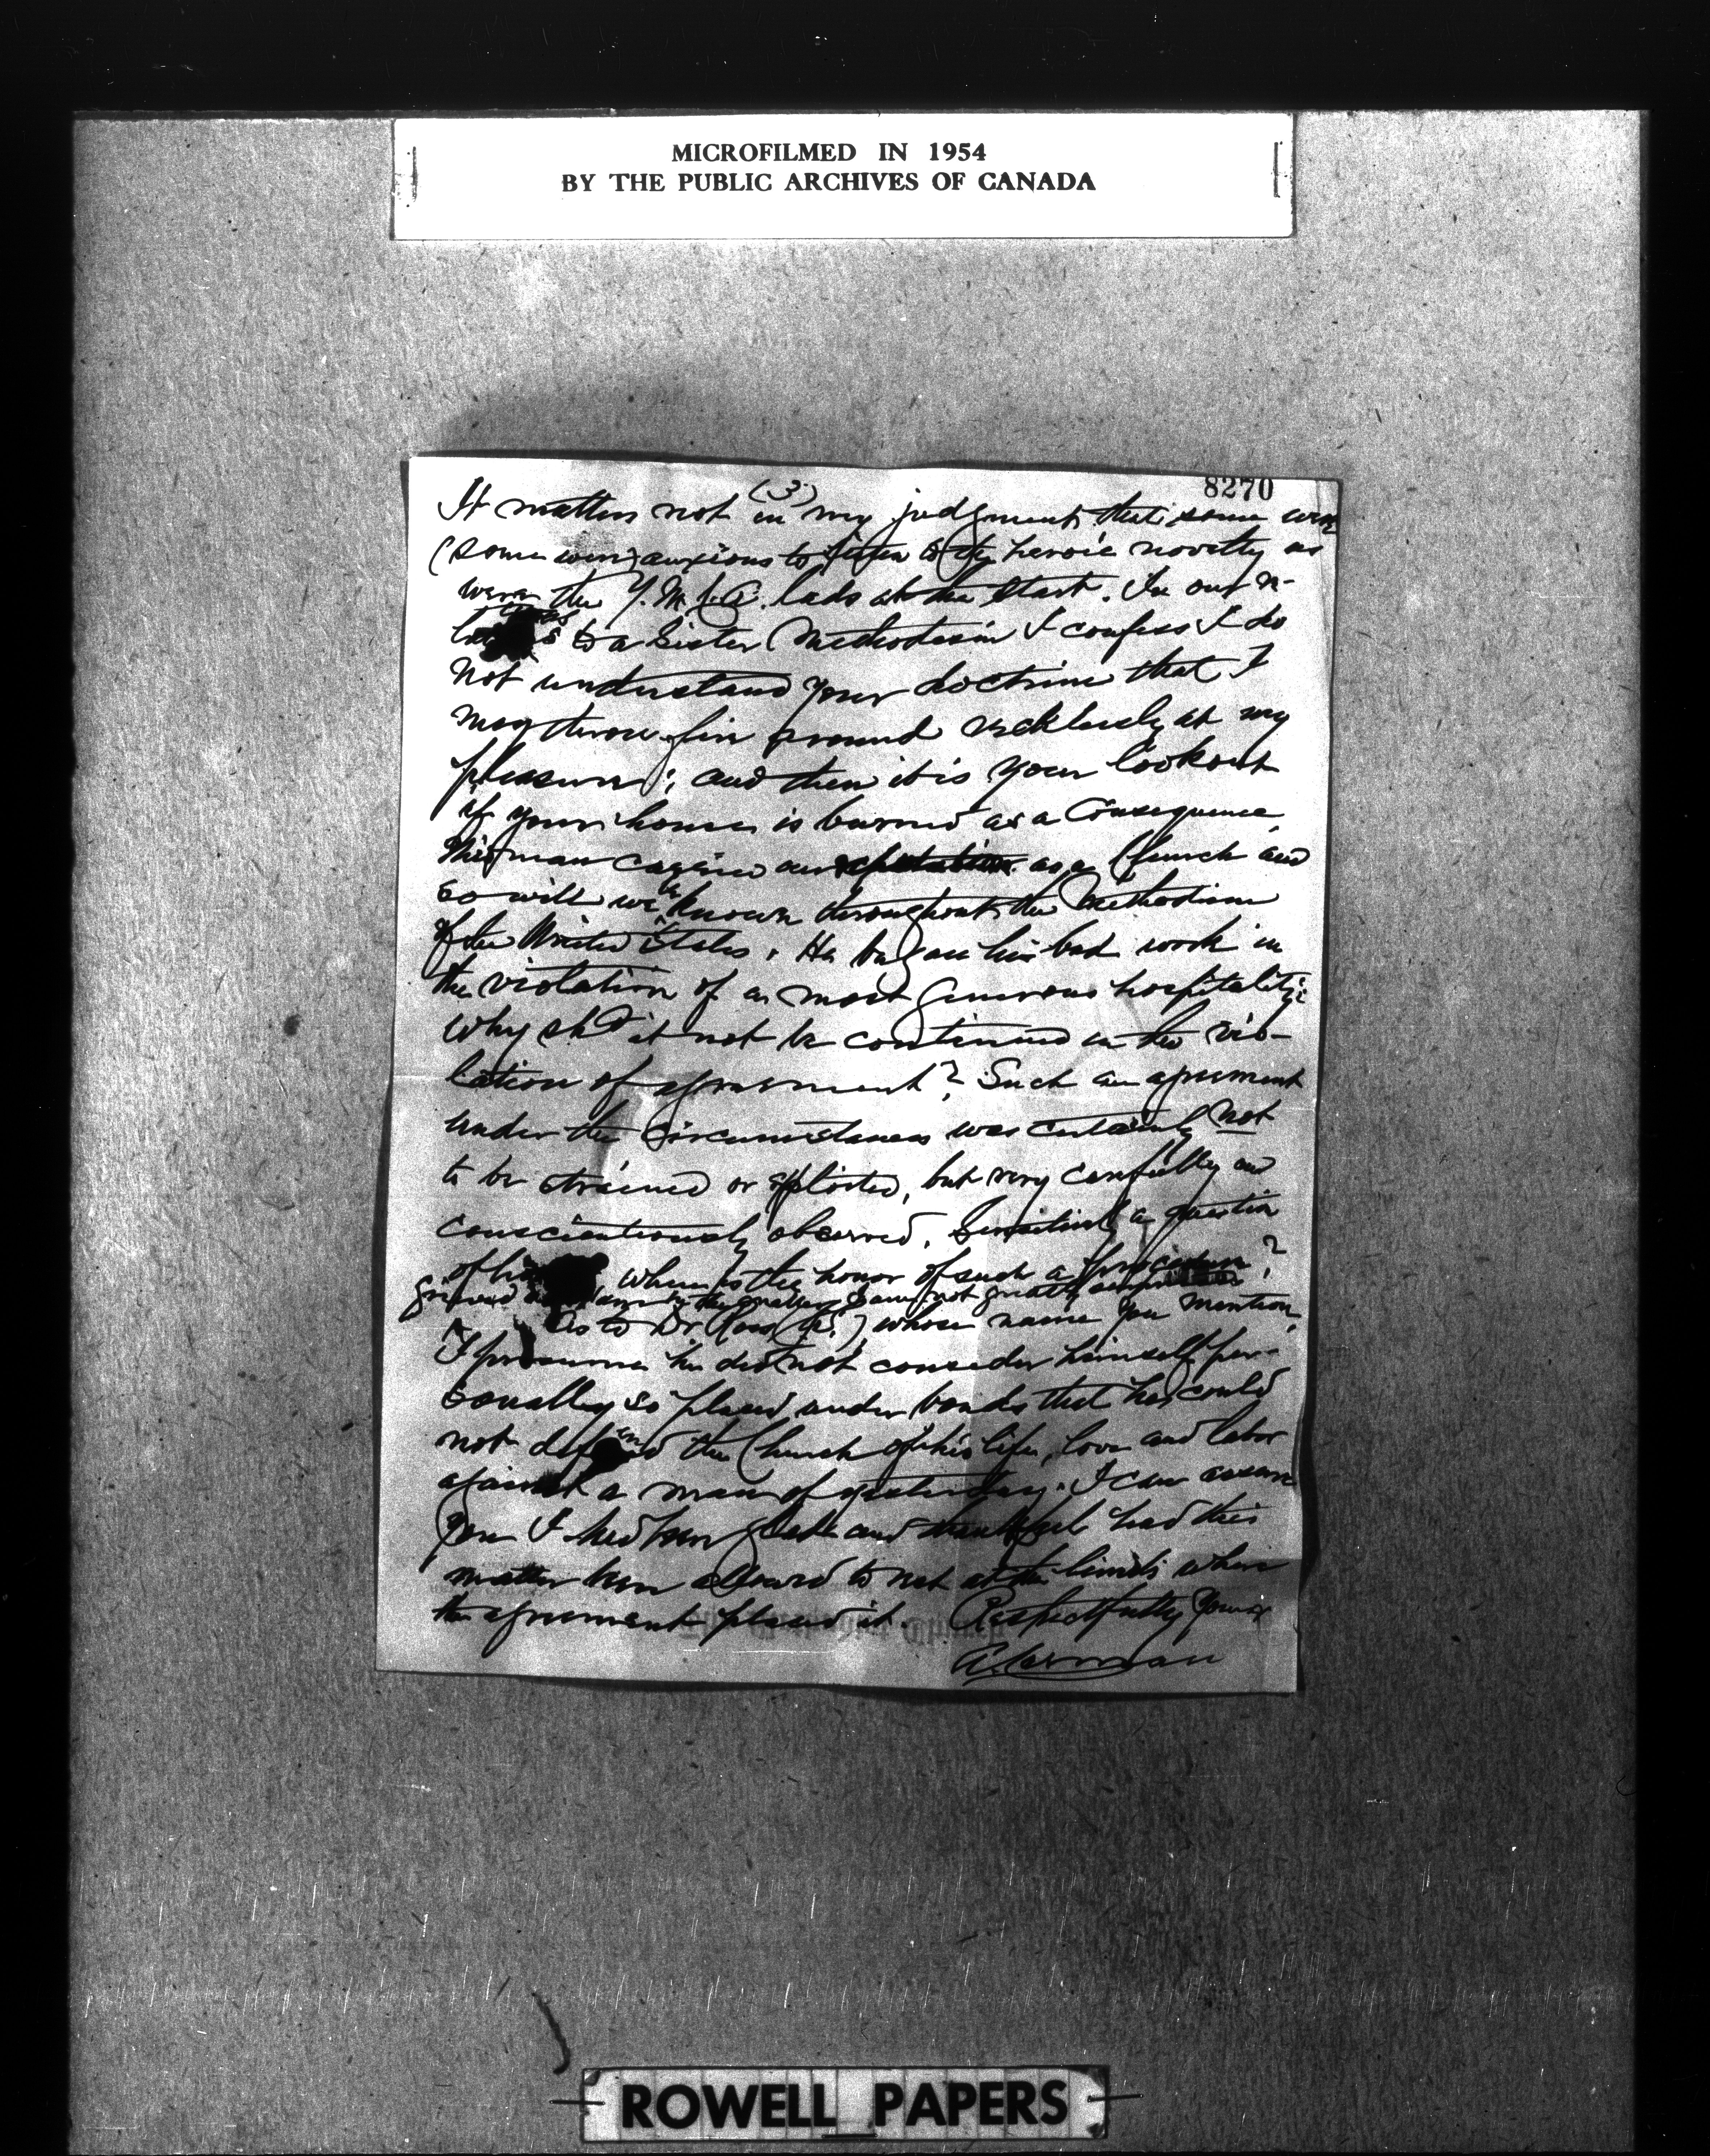 MICROFILMED IN 1954
BY THE PUBLIC ARCHIVES OF CANADA
8270
(3)
It matters not in my judgment that some were
(some were) anxious to listen to the heroic novelty as
were the Y.M.C.A. lads at the start. In our re-
to a Sister Methodism I confess I do
not understand your doctrine that I
may throw fire around recklessly at my
pleasure; and then it is your lookout
if your house is burned as a consequence.
This man our reputation as a Church and
so will be known throughout the Methodism
of the United States. He began his bad work in
the violation of a most generous hospitality:
why shd it not be continued in the vio-
lation of agreement? Such an agreement
under the circumstances was certainly not
to be strained or , but very carefully and
conscientiously observed. Sensitively a question
of , where is the honor of such a ?
grieved am in the matter, I am not greatly surprised
As to Dr. Ross, () whose name you mention,
I presume he did not consider himself per-
sonally so placed under bonds that he could
not defend the Church of his life, love and labor
against a man of yesterday. I can assure
you I had been glad and thankful had this
matter been allowed to rest at the limits where
the agreement placed it. Respectfully Yours
A. Carman
ROWELL PAPERS